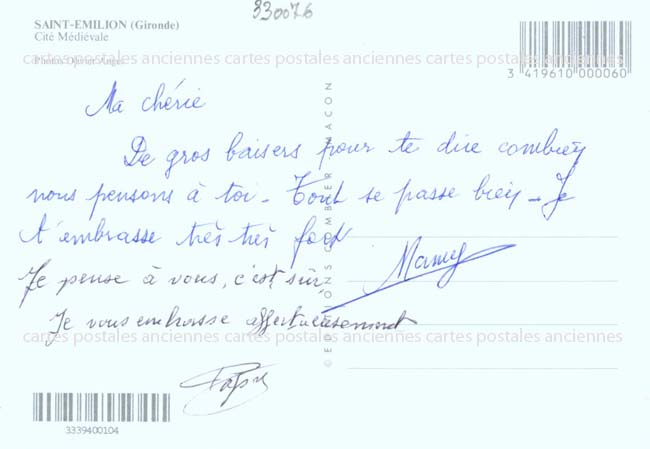 330076
SAINT-EMILION (Gironde)
Cité Médiévale
3 419610 000060
cartes postales anciennes cartes postales anciennes cartes postales anciennes
Ma chérie
De gros baisers pour te dire combien
nous pensons à toi - Tout se passe bien - Je
t'embrasse très très fort
Mamy
Je pense à vous, c'est sûr
Je vous embrasse affectueusement
cartes postales anciennes cartes postales anciennes cartes postales anciennes
3339400104